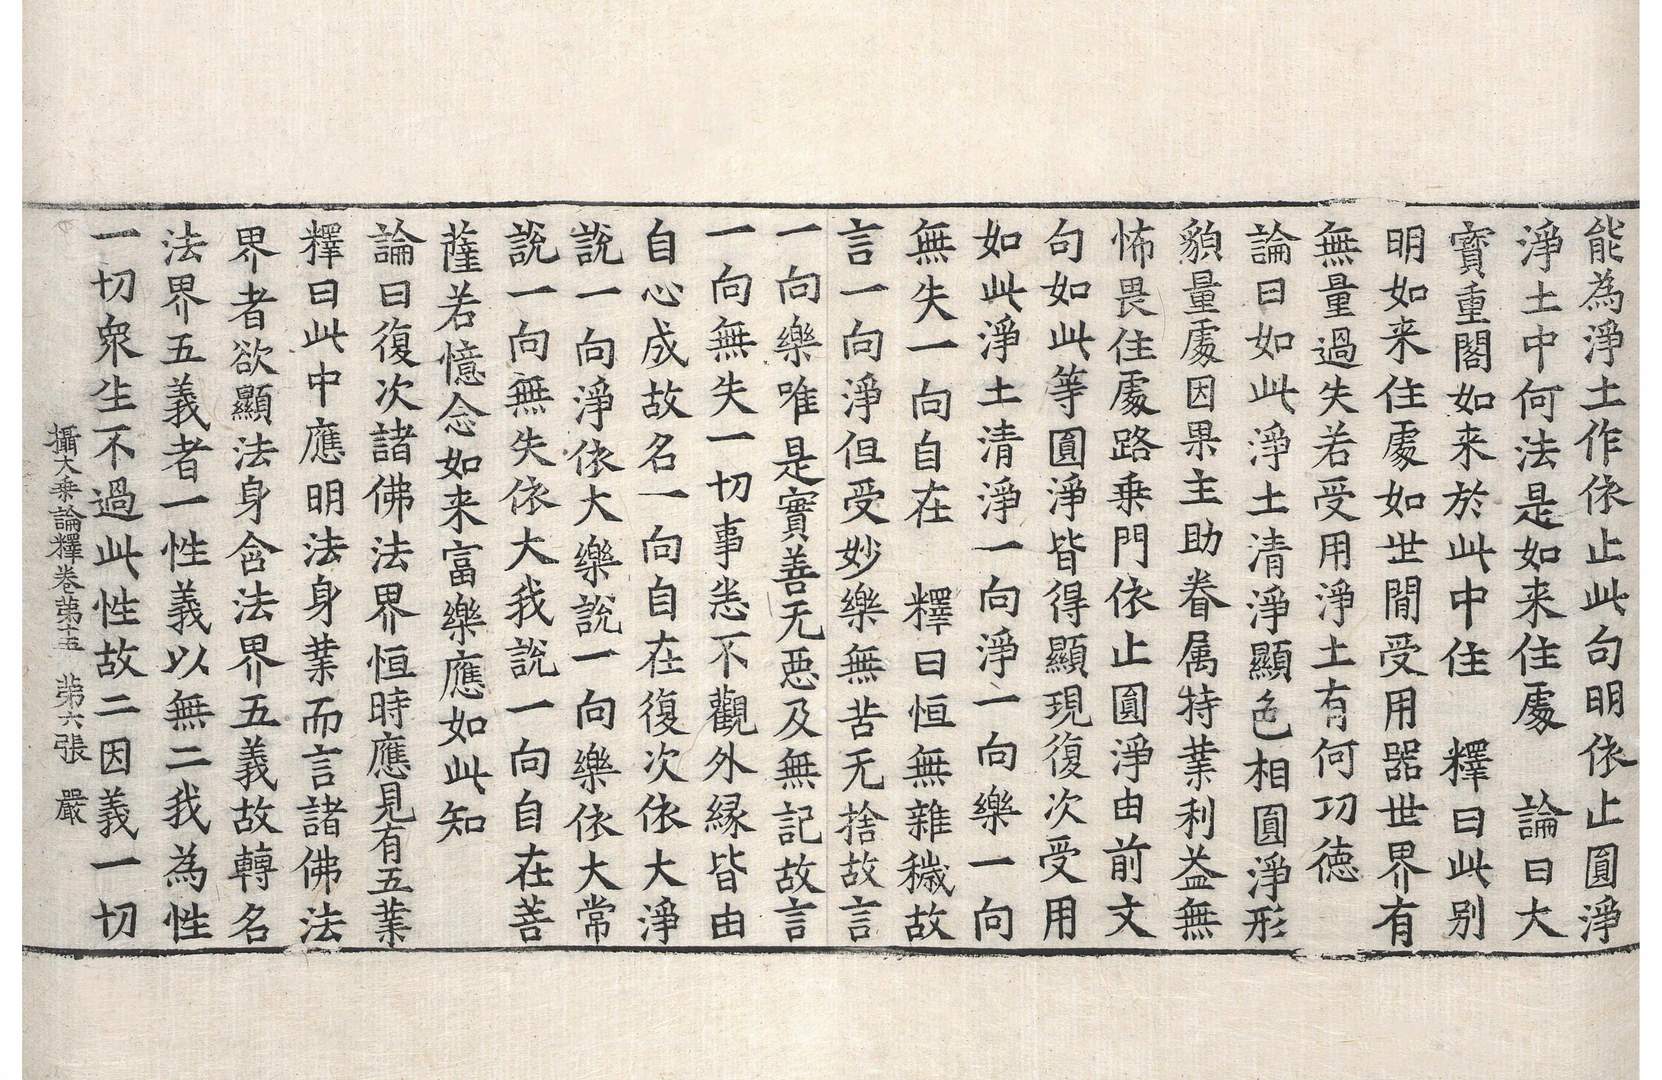 能為淨土作依止此句明依止圓淨
淨土中何法是如来住處　論曰大
寳重閣如来於此中住　釋曰此别
明如来住處如世間受用器世界有
無量過失若受用淨土有何功徳
論曰如此淨土清淨顯色相圓淨形
貌量處因果主助眷属特業利益無
怖畏住處路乗門依止圓淨由前文
句如此等圓淨皆得顯現復次受用
如此淨土清淨一向淨一向樂一向
無失一向自在　釋曰恒無雜穢故
言一向淨但受妙樂無苦无捨故言
一向樂唯是實善无惡及無記故言
一向無失一切事悉不觀外縁皆由
自心成故名一向自在復次依大淨
說一向淨依大樂說一向樂依大常
說一向無失依大我說一向自在菩
薩若憶念如来富樂應如此知
論曰復次諸佛法界恒時應見有五業
釋曰此中應明法身業而言諸佛法
界者欲顯法身含法界五義故轉名
法界五義者一性義以無二我為性
一切衆生不過此性故二因義一切
攝大乗論釋卷第十五　第六張　嚴